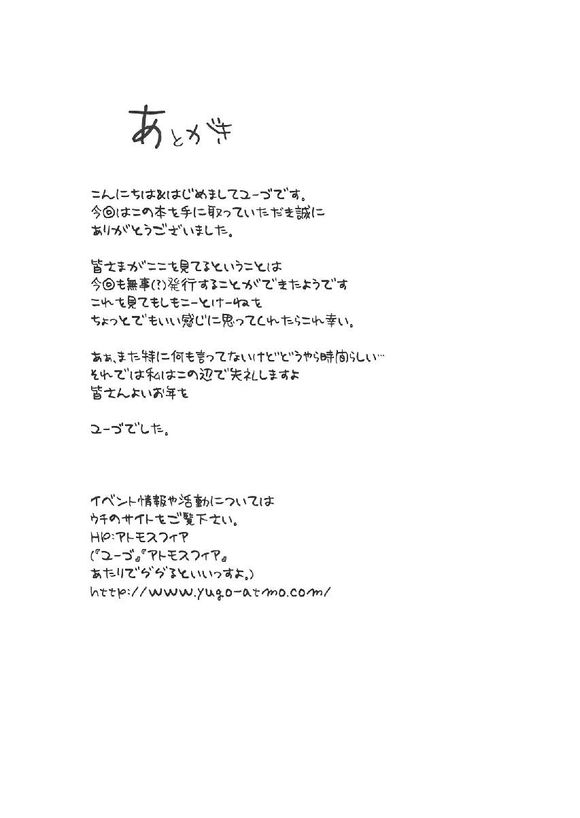 あとがき
こんにちは&はじめましてユーゴです。
今回はこの本を手に取っていただき誠に
ありがとうございました。
皆さまがここを見てるということは
今回も無事(?)発行することができたようです
これを見てもしもこーとけーねを
ちょっとでもいい感じに思ってくれたらこれ幸い。
あぁ、まだ特に何も言ってないけどどうやら時間らしい…
それでは私はこの辺で失礼しますよ
皆さんよいお年を
ユーゴでした。
イベント情報や活動については
ウチのサイトをご覧下さい。
HP:アトモスフィア
(『ユーゴ』『アトモスフィア』
あたりでググるといいっすよ。)
http://www.yugo-atmo.com/